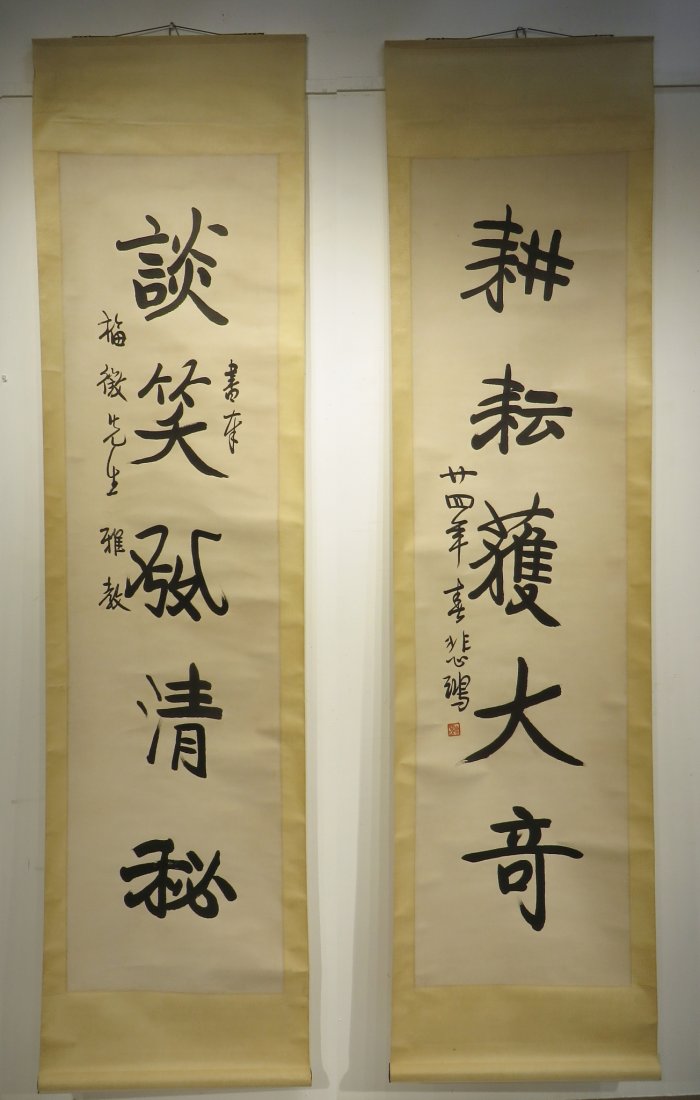 耕耘獲大奇
廿四年春悲鴻
書奉
談笑發清秘
徵先生雅教